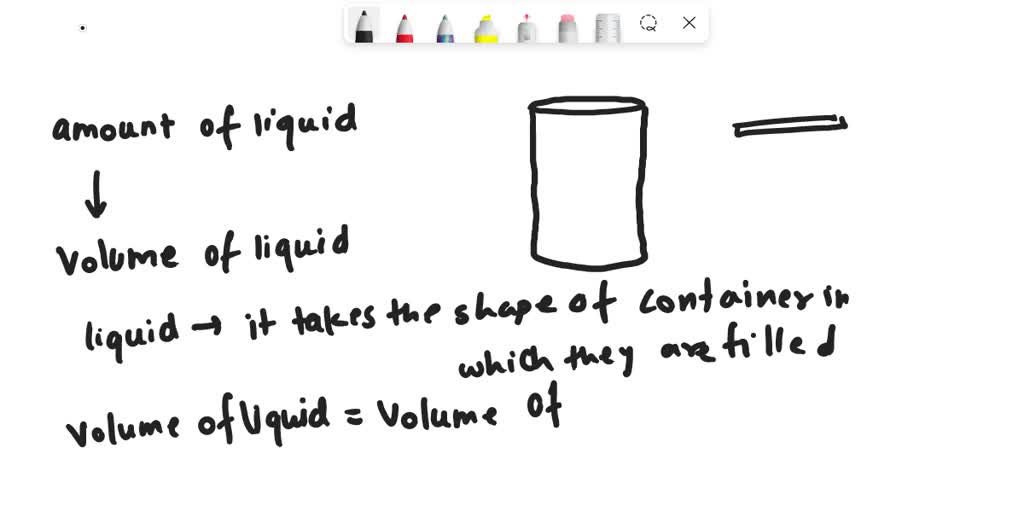 amount of liquid
Volume of liquid
liquid → it takes the shape of container in
which they are filled
Volume of liquid = Volume of